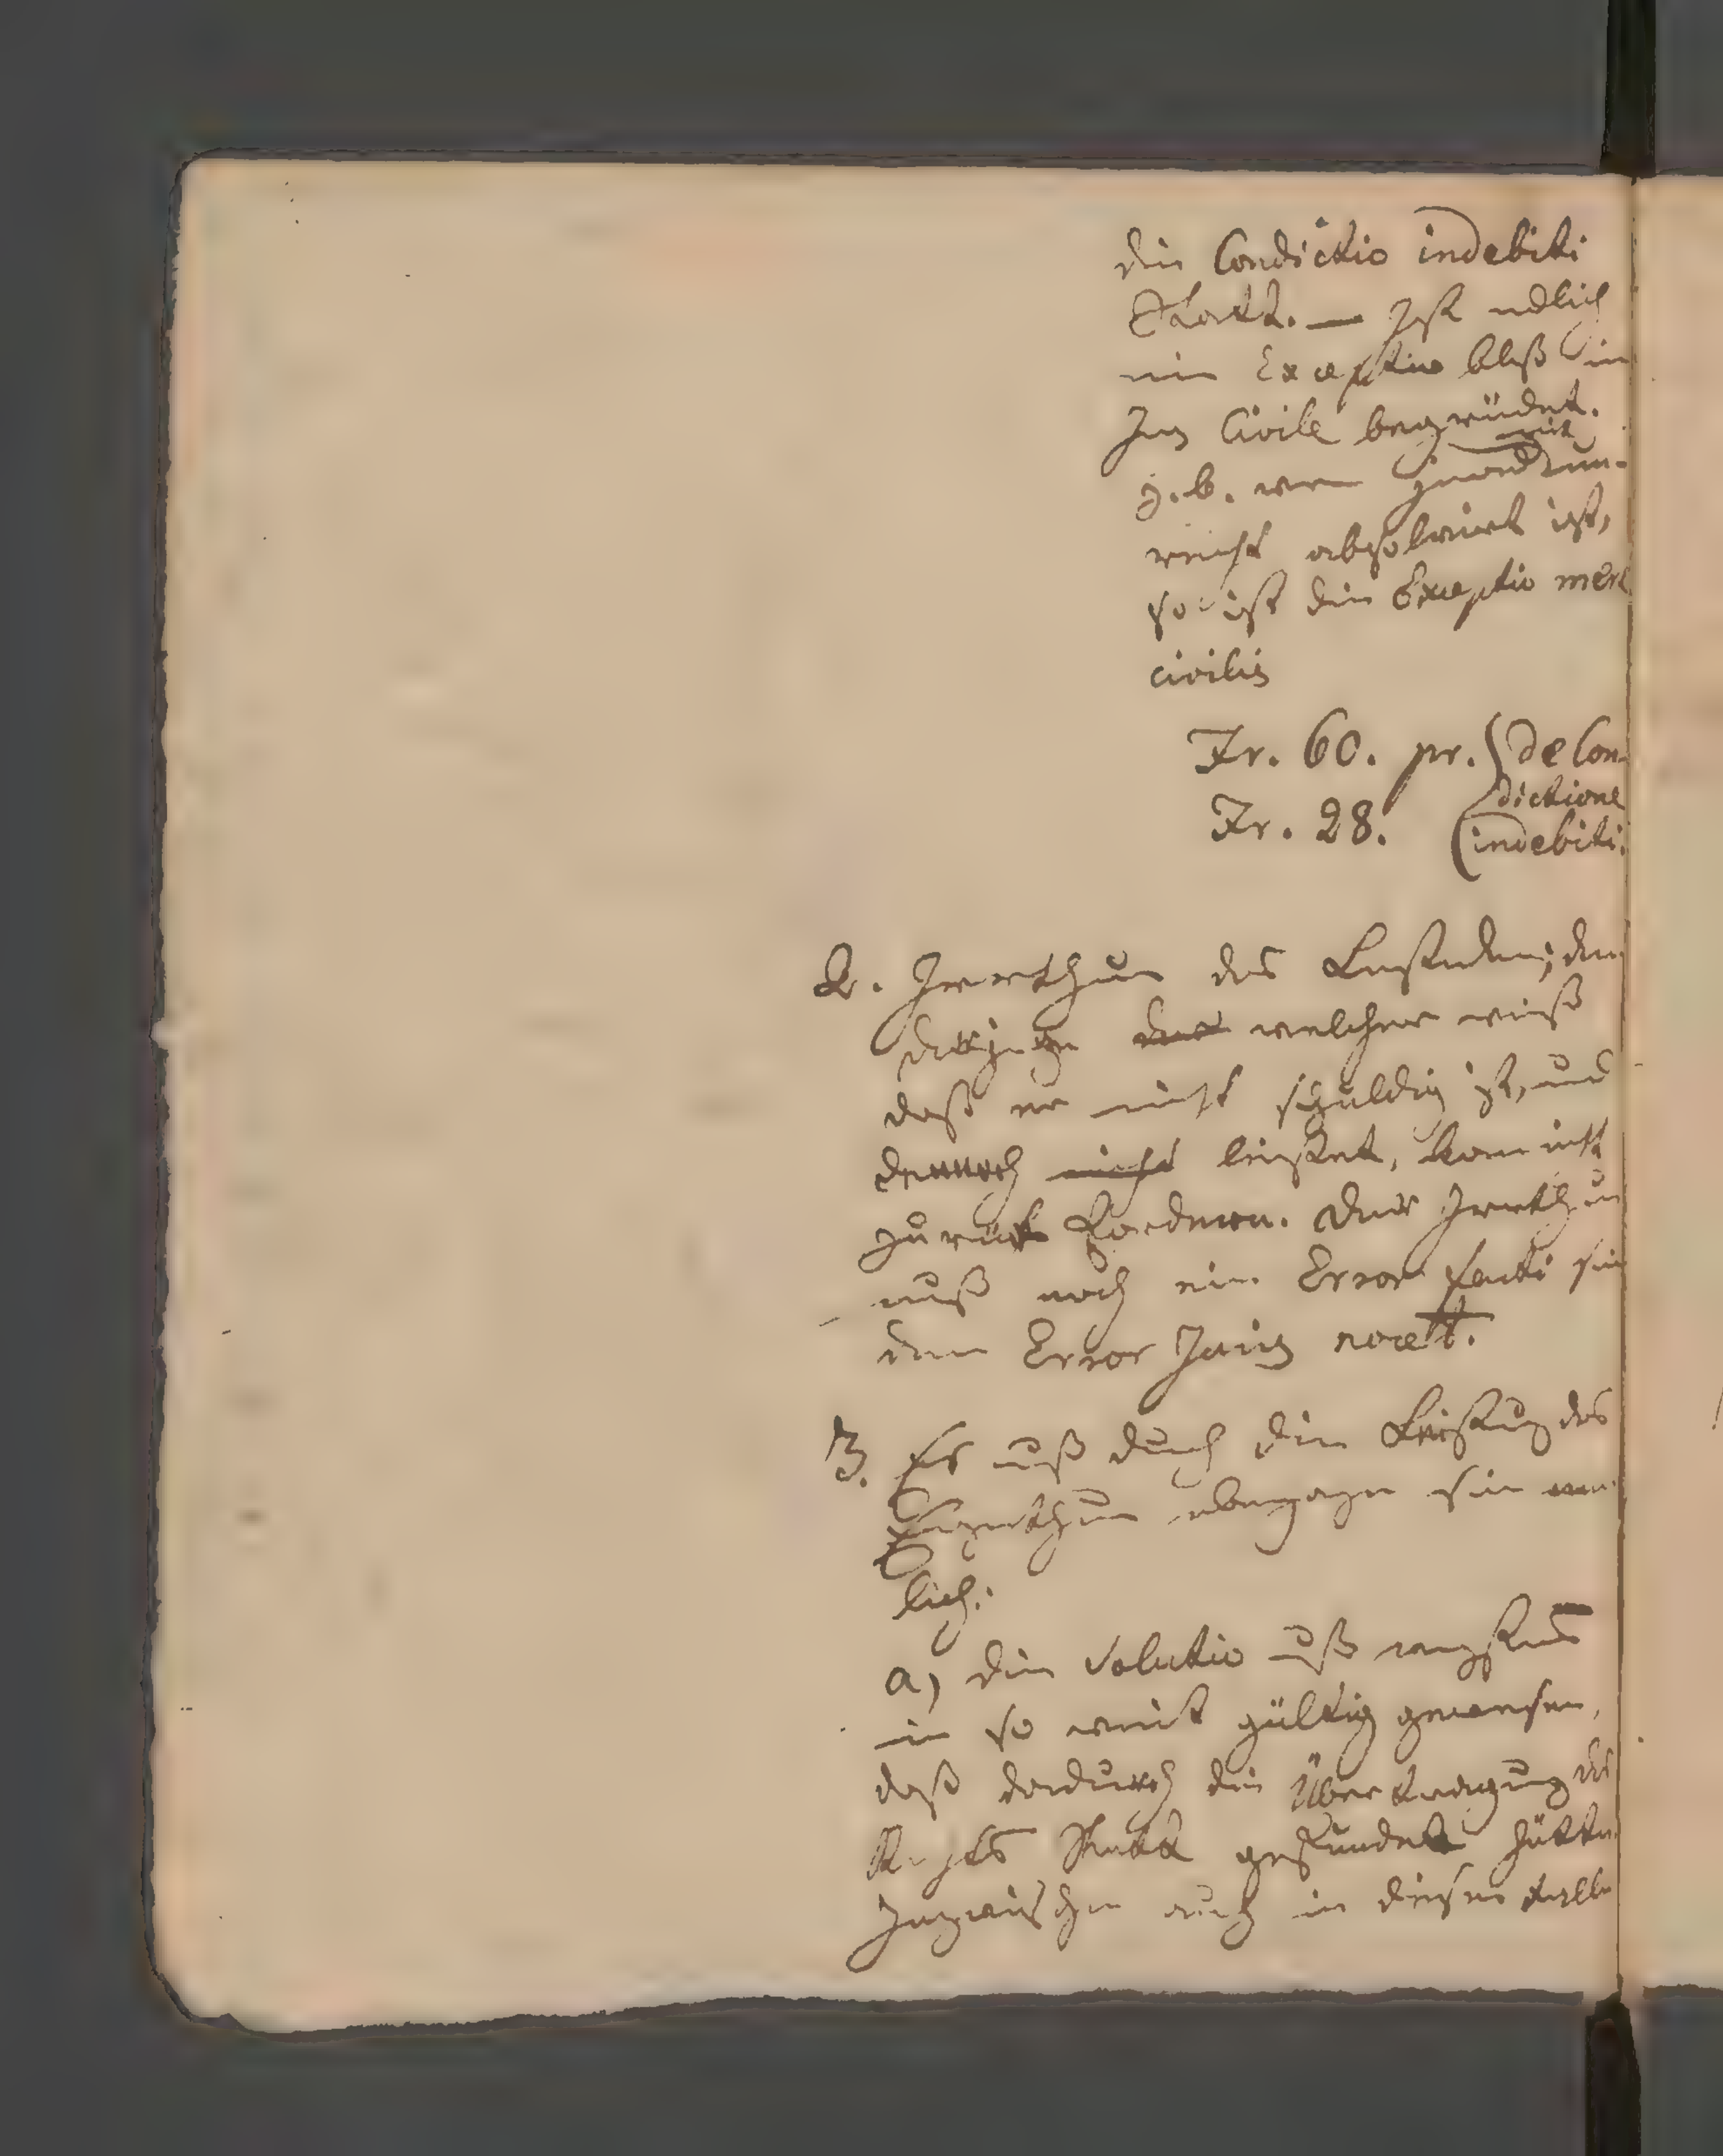 die Condictio indebiti
Statt. — Ist endlich
eine Exceptio bloß im
Jus Civile begründet.
z. b. wenn Jemand mit un-
recht absolvirt ist,
so ist die Exceptio mere
civilis
Fr. 60. pr. } de Con-
dictione
Fr. 28. indebiti.
2. Irrthum des Leistenden; denn
derjenige der welcher weiß
daß er nicht schuldig ist, und
dennoch nicht leistet, kann nicht
zurück fordern. Der Irrthum
muß noch ein Error facti sein
denn Error Juris nocet.
3. Es muß durch die Leistung das
Eigenthum übergegangen sein
lich:
a) die Solutio muß wenigstens
in so weit gültig gewesen,
daß dadurch die Übertragung des
Rechts Statt gefunden hätte.
Inzwischen auch in diesem Falle